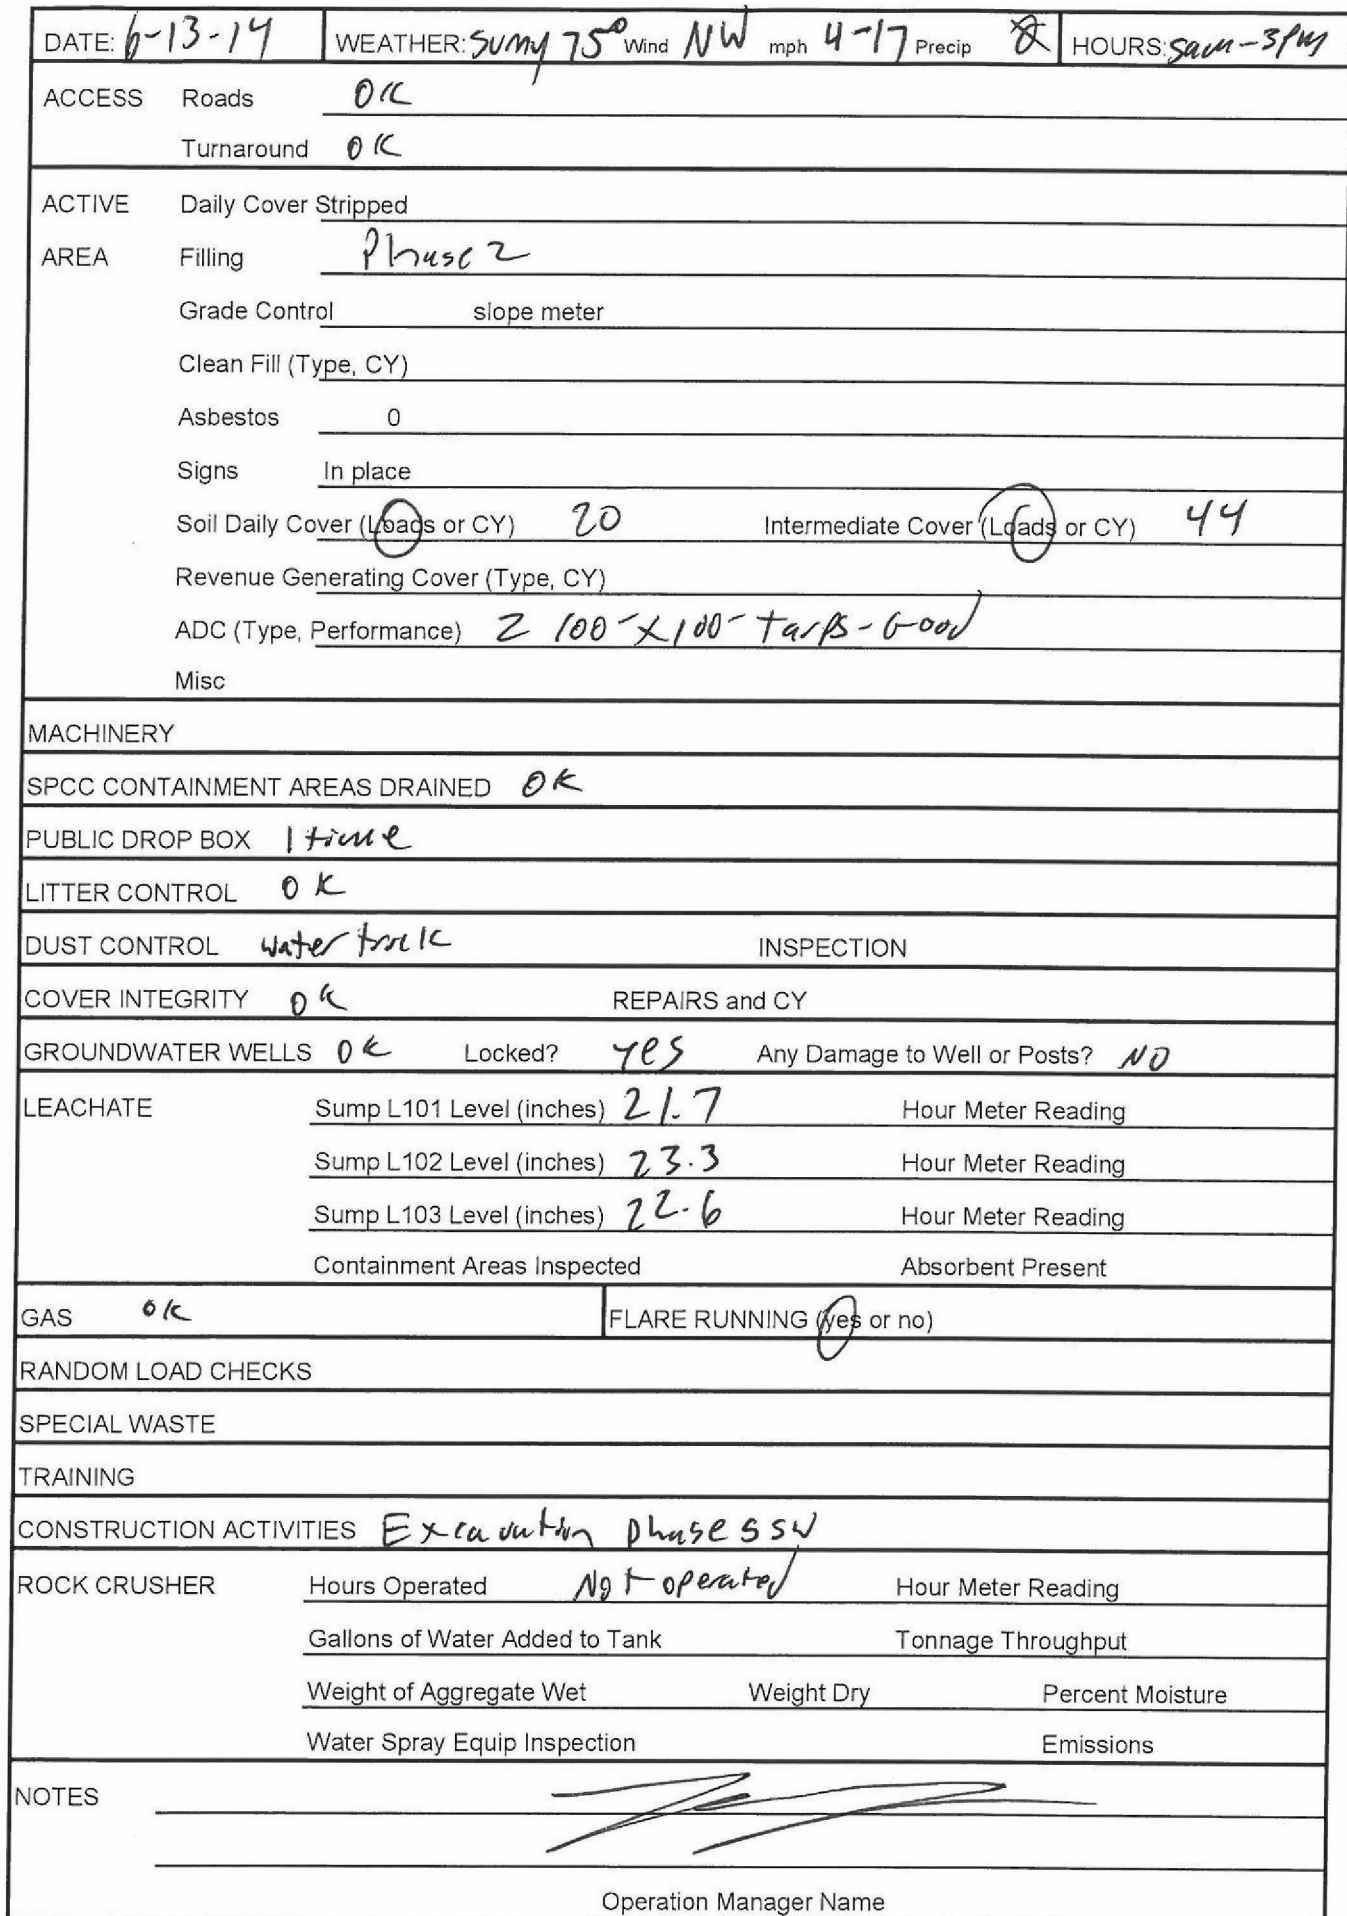 DATE: 6-13-14 WEATHER: Sunny 75° Wind NW mph 4-17 Precip HOURS: 5am-3pm
ACCESS Roads OK
Turnaround OK
ACTIVE Daily Cover Stripped
AREA Filling Phase 2
Grade Control slope meter
Clean Fill (Type, CY)
Asbestos 0
Signs In place
Soil Daily Cover (Loads or CY) 20 Intermediate Cover (Loads or CY) 44
Revenue Generating Cover (Type, CY)
ADC (Type, Performance) 2 100-X100- tarps-Good
Misc
MACHINERY
SPCC CONTAINMENT AREAS DRAINED OK
PUBLIC DROP BOX 1 time
LITTER CONTROL OK
DUST CONTROL water truck INSPECTION
COVER INTEGRITY OK REPAIRS and CY
GROUNDWATER WELLS OK Locked? yes Any Damage to Well or Posts? NO
LEACHATE Sump L101 Level (inches) 21.7 Hour Meter Reading
Sump L102 Level (inches) 23.3 Hour Meter Reading
Sump L103 Level (inches) 22.6 Hour Meter Reading
Containment Areas Inspected Absorbent Present
GAS OK FLARE RUNNING (yes or no)
RANDOM LOAD CHECKS
SPECIAL WASTE
TRAINING
CONSTRUCTION ACTIVITIES Excavation phase 5 SW
ROCK CRUSHER Hours Operated Not operated Hour Meter Reading
Gallons of Water Added to Tank Tonnage Throughput
Weight of Aggregate Wet Weight Dry Percent Moisture
Water Spray Equip Inspection Emissions
NOTES
Operation Manager Name